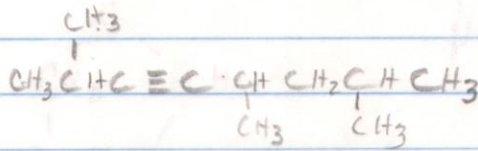 CH3
CH3CHC≡C·CH CH2CH CH3
CH3 CH3